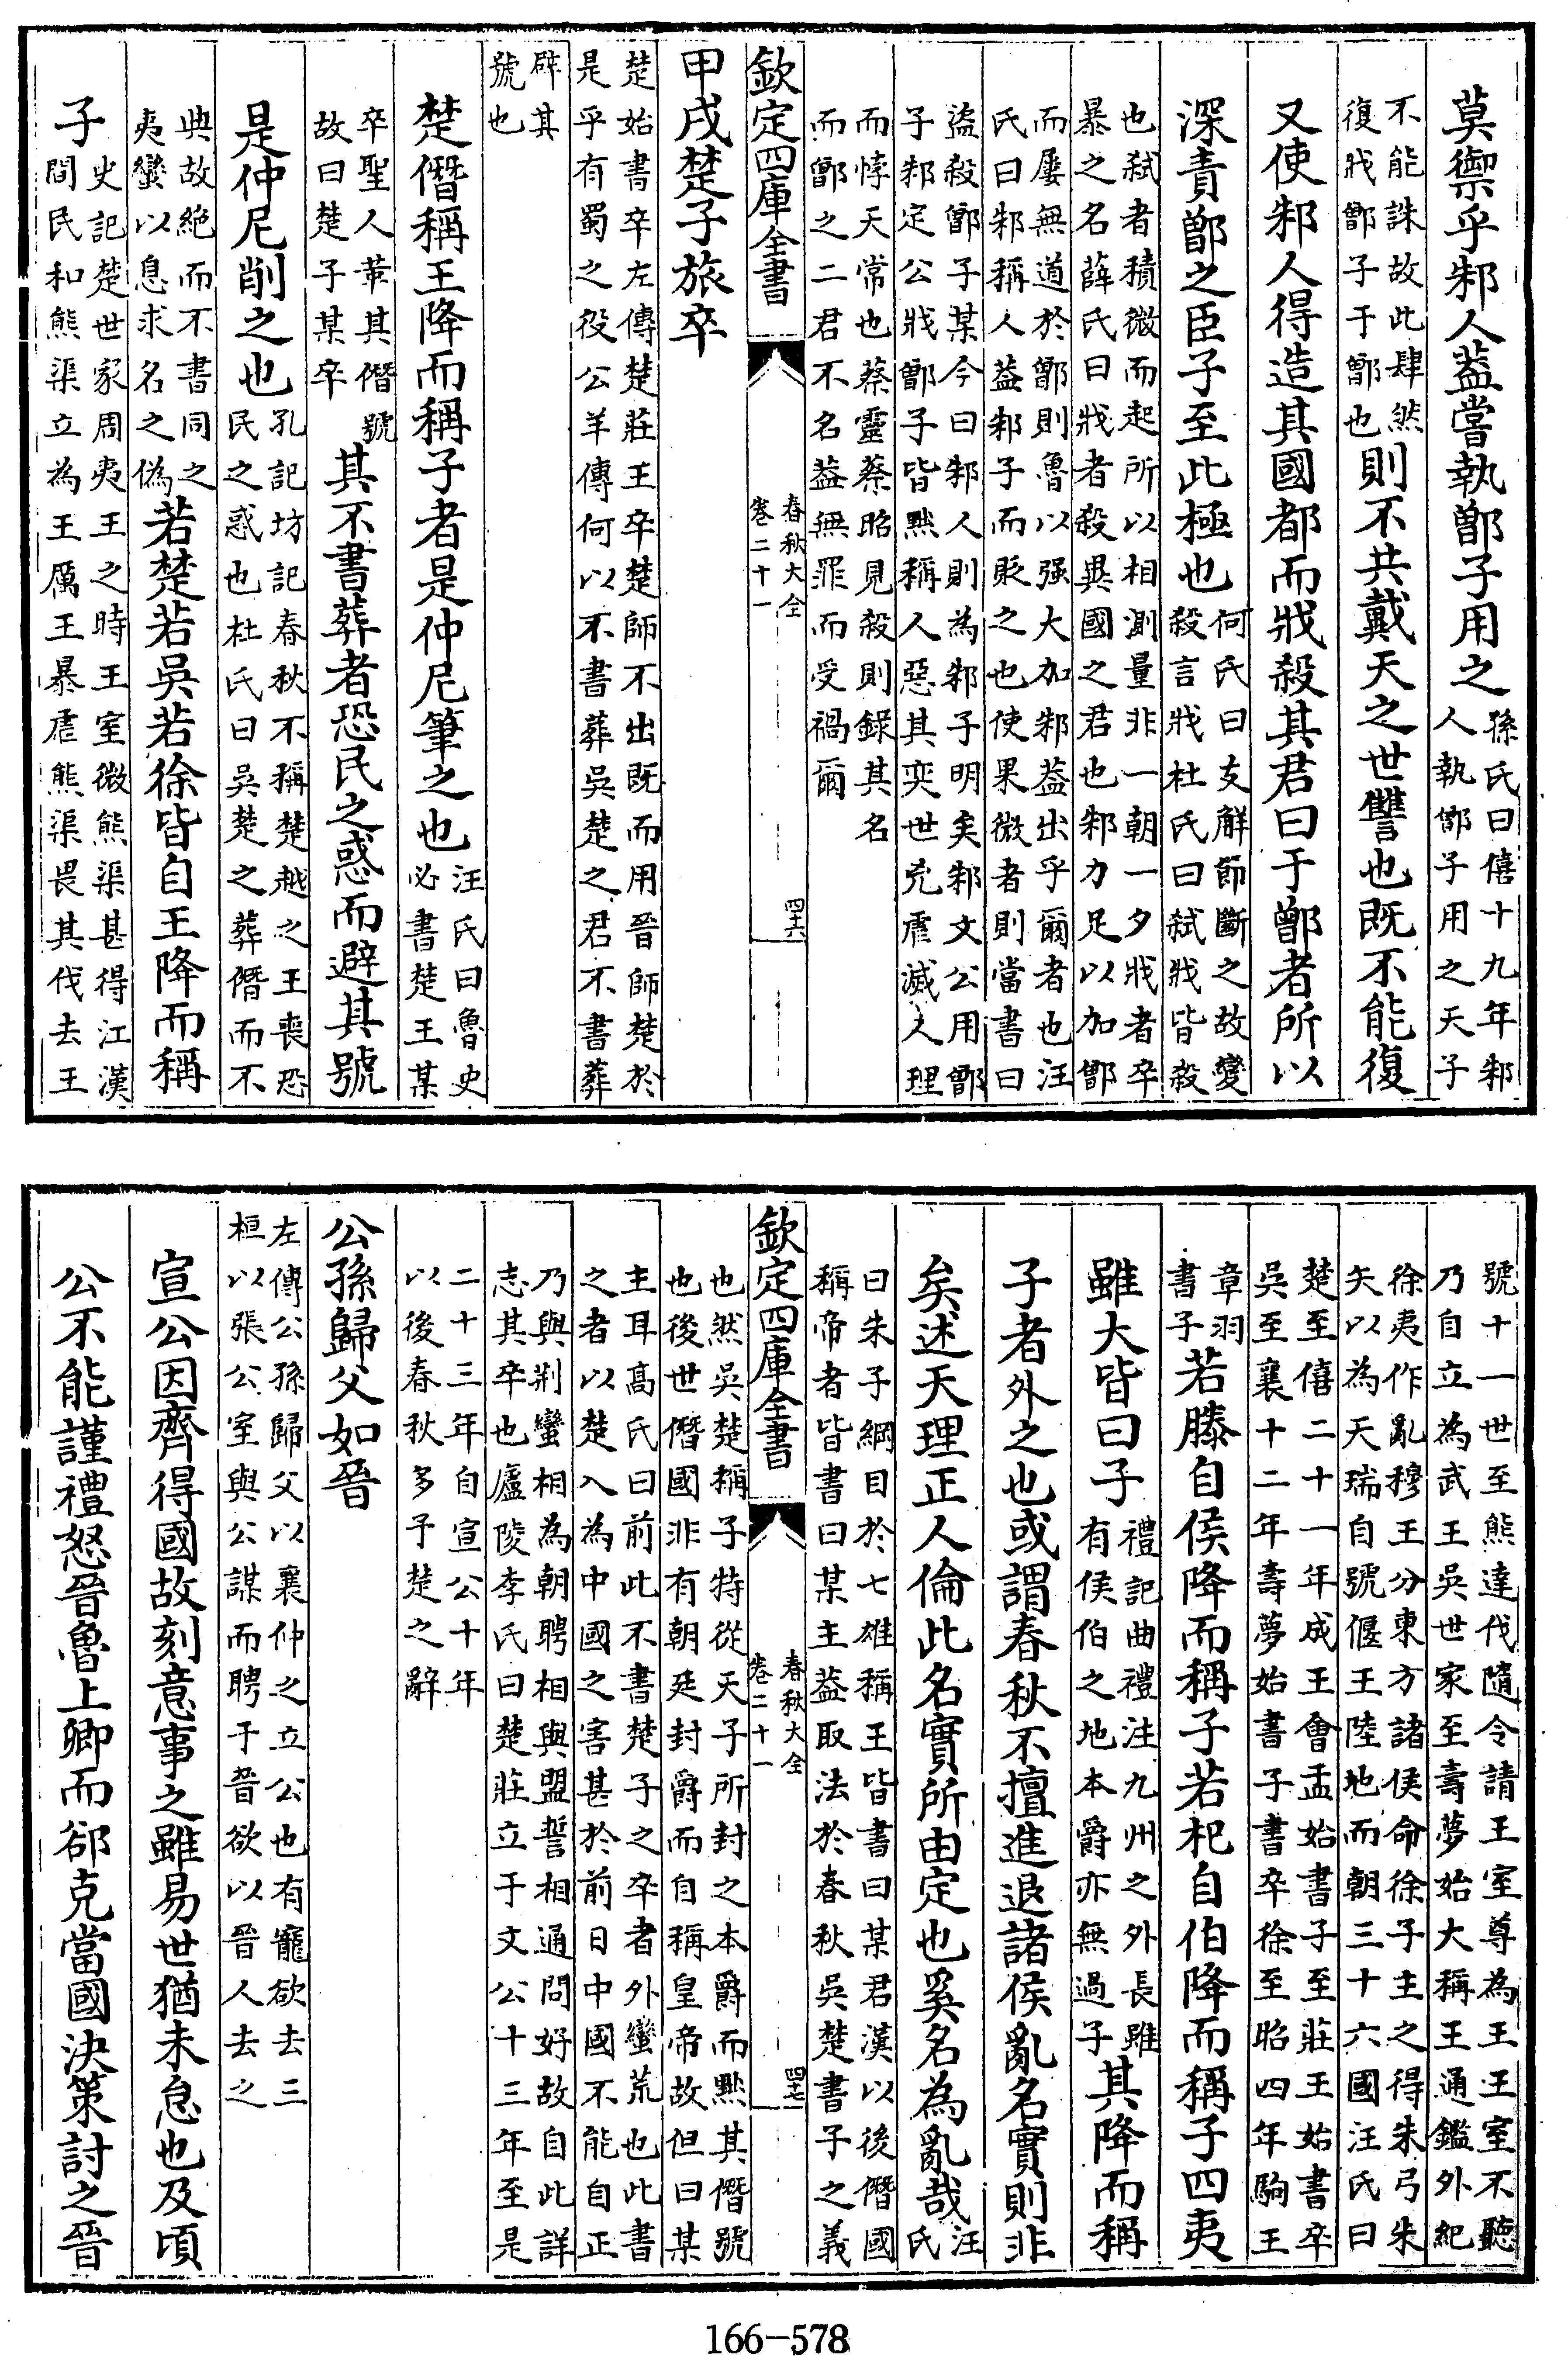 莫禦乎邾人葢嘗執鄫子用之孫氏曰僖十九年邾人執鄫子用之天子
不能誅故此肆然復戕鄫子于鄫也則不共戴天之世讐也既不能復
又使邾人得造其國都而戕殺其君曰于鄫者所以
深責鄫之臣子至此極也何氏曰支解節斷之故變殺言戕杜氏曰弑戕皆殺
也弑者積微而起所以相測量非一朝一夕戕者卒暴之名薛氏曰戕者殺異國之君也邾力足以加鄫
而屢無道於鄫則魯以强大加邾葢出乎爾者也汪氏曰邾稱人葢邾子而貶之也使果微者則當書曰
盜殺鄫子某今曰邾人則為邾子明矣邾文公用鄫子邾定公戕鄫子皆㸃稱人惡其奕世兇虐滅人理
而悖天常也蔡靈蔡昭見殺則録其名而鄫之二君不名葢無罪而受禍爾
欽定四庫全書 春秋大全 卷二十一 四十六
甲戌楚子旅卒
楚始書卒左傳楚莊王卒楚師不出既而用晉師楚於是乎有蜀之役公羊傳何以不書葬吳楚之君不書葬
辟其號也
楚僭稱王降而稱子者是仲尼筆之也汪氏曰魯史必書楚王某
卒聖人革其僭號故曰楚子某卒其不書葬者恐民之惑而避其號
是仲尼削之也孔記坊記春秋不稱楚越之王喪恐民之惑也杜氏曰吳楚之葬僭而不
典故絶而不書同之夷蠻以息求名之偽若楚若吳若徐皆自王降而稱
子史記楚世家周夷王之時王室微熊渠甚得江漢間民和熊渠立為王厲王暴虐熊渠畏其伐去王
號十一世至熊達伐隨令請王室尊為王王室不聽乃自立為武王吳世家至壽夢始大稱王通鑑外紀
徐夷作亂穆王分東方諸侯命徐子主之得朱弓朱矢以為天瑞自號偃王陸地而朝三十六國汪氏曰
楚至僖二十一年成王會盂始書子至莊王始書卒吳至襄十二年壽夢始書子書卒徐至昭四年駒王
章羽書子若滕自侯降而稱子若杞自伯降而稱子四夷
雖大皆曰子禮記曲禮注九州之外長雖有侯伯之地本爵亦無過子其降而稱
子者外之也或謂春秋不擅進退諸侯亂名實則非
矣述天理正人倫此名實所由定也奚名為亂哉汪氏
曰朱子綱目於七雄稱王皆書曰某君漢以後僭國稱帝者皆書曰某主葢取法於春秋吳楚書子之義
欽定四庫全書 春秋大全 卷二十一 四十七
也然吳楚稱子特從天子所封之本爵而㸃其僭號也後世僭國非有朝廷封爵而自稱皇帝故但曰某
主耳髙氏曰前此不書楚子之卒者外蠻荒也此書之者以楚入為中國之害甚於前日中國不能自正
乃與荆蠻相為朝聘相與盟誓相通問好故自此詳志其卒也廬陵李氏曰楚莊立于文公十三年至是
二十三年自宣公十年以後春秋多予楚之辭
公孫歸父如晉
左傳公孫歸父以襄仲之立公也有寵欲去三桓以張公室與公謀而聘于晉欲以晉人去之
宣公因齊得國故刻意事之雖易世猶未怠也及頃
公不能謹禮怒晉魯上卿而郤克當國決策討之晉
166-578